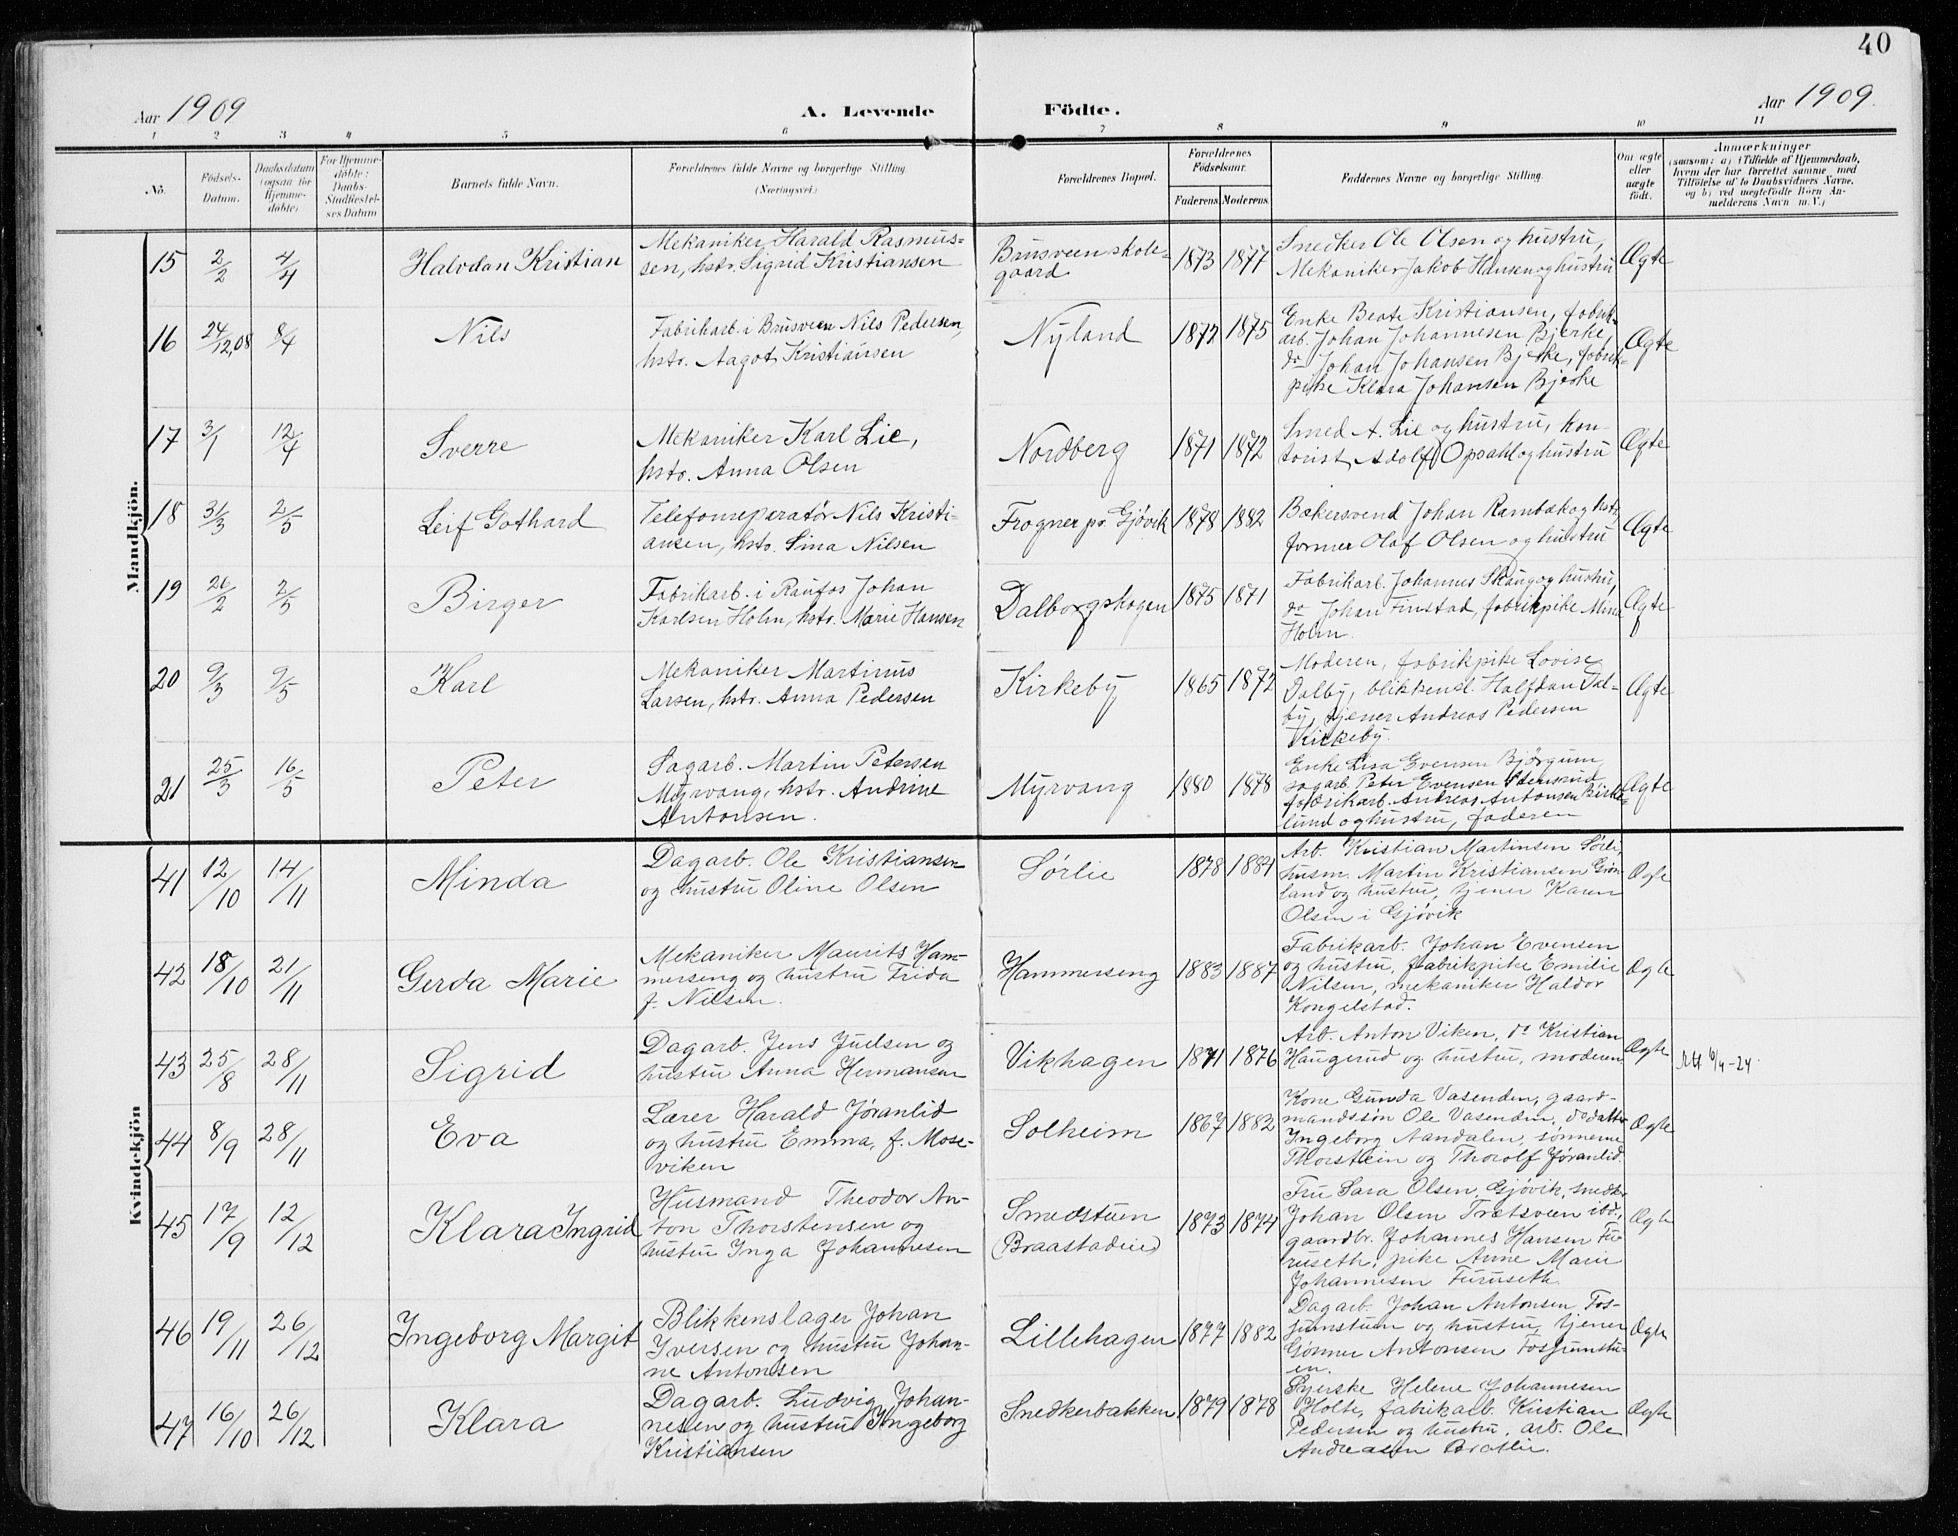 40
Aar 1909
A. Levende Födte.
Aar 1909.
1 2 3 4 5 6 7 8 9 10 11
No.
Födsels-Datum.
Daabsdatum (ogsaa for Hjemme-döbte)
For Hjemme-döbte: Daabs-Stadfæstel-ses Datum
Barnets fulde Navn.
Forældrenes fulde Navne og borgerlige Stilling. (Næringsvei.)
Forældrenes Bopæl.
Forældrenes Födselsaar.
Faderens. Moderens.
Faddernes Navne og borgerlige Stilling.
Om ægte eller uægte födt.
Anmærkninger
(saasom: a) i Tilfælde af Hjemmedaab,
hvem der har forrettet samme med
Tilföielse af to Daabsvidners Navne,
og b) ved uægtefödte Börn An-
melderens Navn m. V.)
Mandkjön.
15 2/2 4/4 Halvdan Kristian
Mekaniker Harald Rasmus-
sen, hstr. Sigrid Kristiansen
Brusveen skole-
gaard
1873 1877
Snedker Ole Olsen og hustru,
Mekaniker Jakob Hansen og hustru
Ægte
16 24/12,08 8/4 Nils
Fabrikarb. i Brusveen Nils Pedersen,
hstr. Aagot Kristiansen
Nyland
1872 1875
Enke Beate Kristiansen, fabrik-
arb. Johan Johannesen Bjerke,
do Johan Johansen Bjerke, fabrik-
pike Klara Johansen Bjerke
Ægte
17 3/1 12/4 Sverre
Mekaniker Karl Lie,
hstr. Anna Olsen
Nordberg
1871 1872
Smed A. Lie og hustru, kon-
torist Adolf Opsahl og hustru
Ægte
18 31/3 2/5 Leif Gothard
Telefonreparatør Nils Kristi-
ansen, hstr. Sina Nilsen
Frogner pr. Gjøvik
1878 1882
Bakersvend Johan Rambæk og hstr,
former Olaf Olsen og hustru
Ægte
19 26/2 2/5 Birger
Fabrikarb. i Raufos Johan
Karlsen Holm, hstr. Marie Hansen
Dalborgshagen
1875 1871
Fabrikarb. Johannes Skaug og hustru,
do Johan Finstad, fabrikpike Mina
Holm.
Ægte
20 9/3 9/5 Karl
Mekaniker Martinus
Larsen, hstr. Anna Pedersen
Kirkeby
1865 1872
Moderen, fabrikpike Lovise
Dalby, blikkensl. Halfdan Dal-
by, tjener Andreas Pedersen
Kirkeby.
Ægte
21 25/3 16/5 Peter
Sagarb. Martin Petersen
Myrvang, hstr. Andrine
Antonsen.
Myrvang
1880 1878
Enke Lisa Evensen Bjørgum,
sagarb. Peter Evensen Stensrud,
fabrikarb. Andreas Antonsen Birke-
lund og hustru, faderen
Ægte
Kvindekjön
41 12/10 14/11 Minda
Dagarb. Ole Kristiansen
og hustru Oline Olsen
Sørlie
1878 1884
Arb. Kristian Martinsen Sørli,
husm. Martin Kristiansen Grøn-
land og hustru, tjener Karen
Olsen i Gjøvik
Ægte
42 18/10 21/11 Gerda Marie
Mekaniker Maurits Ham-
merseng og hustru Frida
f. Nilsen.
Hammerseng
1883 1887
Fabrikarb. Johan Evensen
og hustru, fabrikpike Emilie
Nilsen, mekaniker Haldor
Kongelstad.
Ægte
43 25/8 28/11 Sigrid
Dagarb. Jens Juelsen og
hustru Anna Hermansen
Vikhagen
1871 1876
Arb. Anton Viken, do Kristian
Haugerud og hustru, moderen
Ægte
6/4-24.
44 8/9 28/11 Eva
Lærer Harald Jøranlid
og hustru Emma, f. Mose-
viken
Solheim
1867 1882
Kone Gunda Vasenden, gaard-
mandssøn Ole Vasenden, do datter
Ingeborg Aandalen, sønnerne
Thorstein og Thorolf Jøranlid.
Ægte
45 17/9 12/12 Klara Ingrid
Husmand Theodor An-
ton Thorstensen og
hustru Inga Johannesen
Smedstuen
(Braastadeie)
1873 1874
Fru Sara Olsen, Gjøvik, snedker
Johan Olsen Trætsveen ibd.,
gaardbr. Johannes Hansen Fu-
ruseth, pike Anne Marie
Johannesen Furuseth.
Ægte
46 19/11 26/12 Ingeborg Margit
Blikkenslager Johan
Iversen og hustru Johan-
ne Antonsen
Lillehagen
1877 1882
Dagarb. Johan Antonsen Fos-
sumstuen og hustru, tjener
Gunner Antonsen Fossumstu-
en.
Ægte
47 16/10 26/12 Klara
Dagarb. Ludvig Johan-
nesen og hustru Ingeborg
Kristiansen
Snedkerbakken
1879 1878
Syerske Helene Johannesen
Holte, fabrikarb. Kristian
Pedersen og hustru, arb. Ole
Andreasen Bratlie.
Ægte